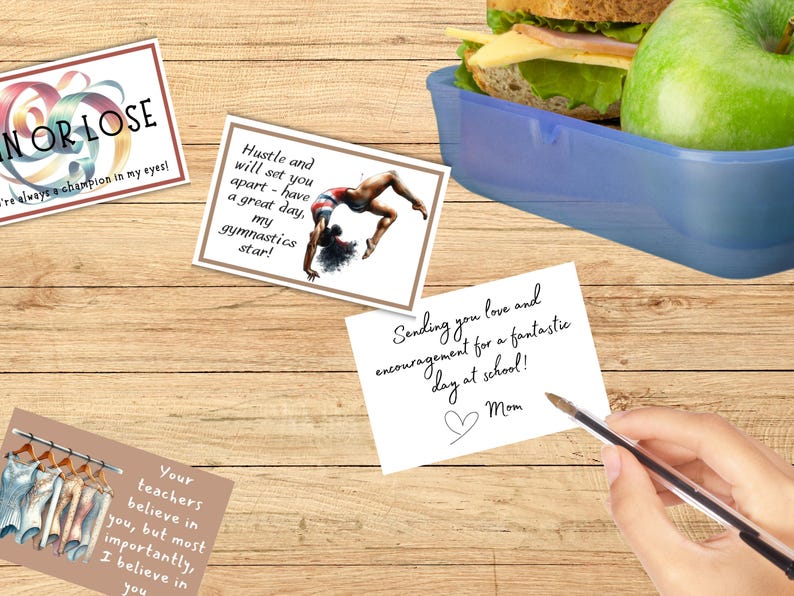 IN OR LOSE
're always a champion in my eyes!
Hustle and
will set you
apart - have
a great day,
my
gymnastics
star!
Sending you love and
encouragement for a fantastic
day at school!
Mom
Your
teachers
believe in
you, but most
importantly,
I believe in
you